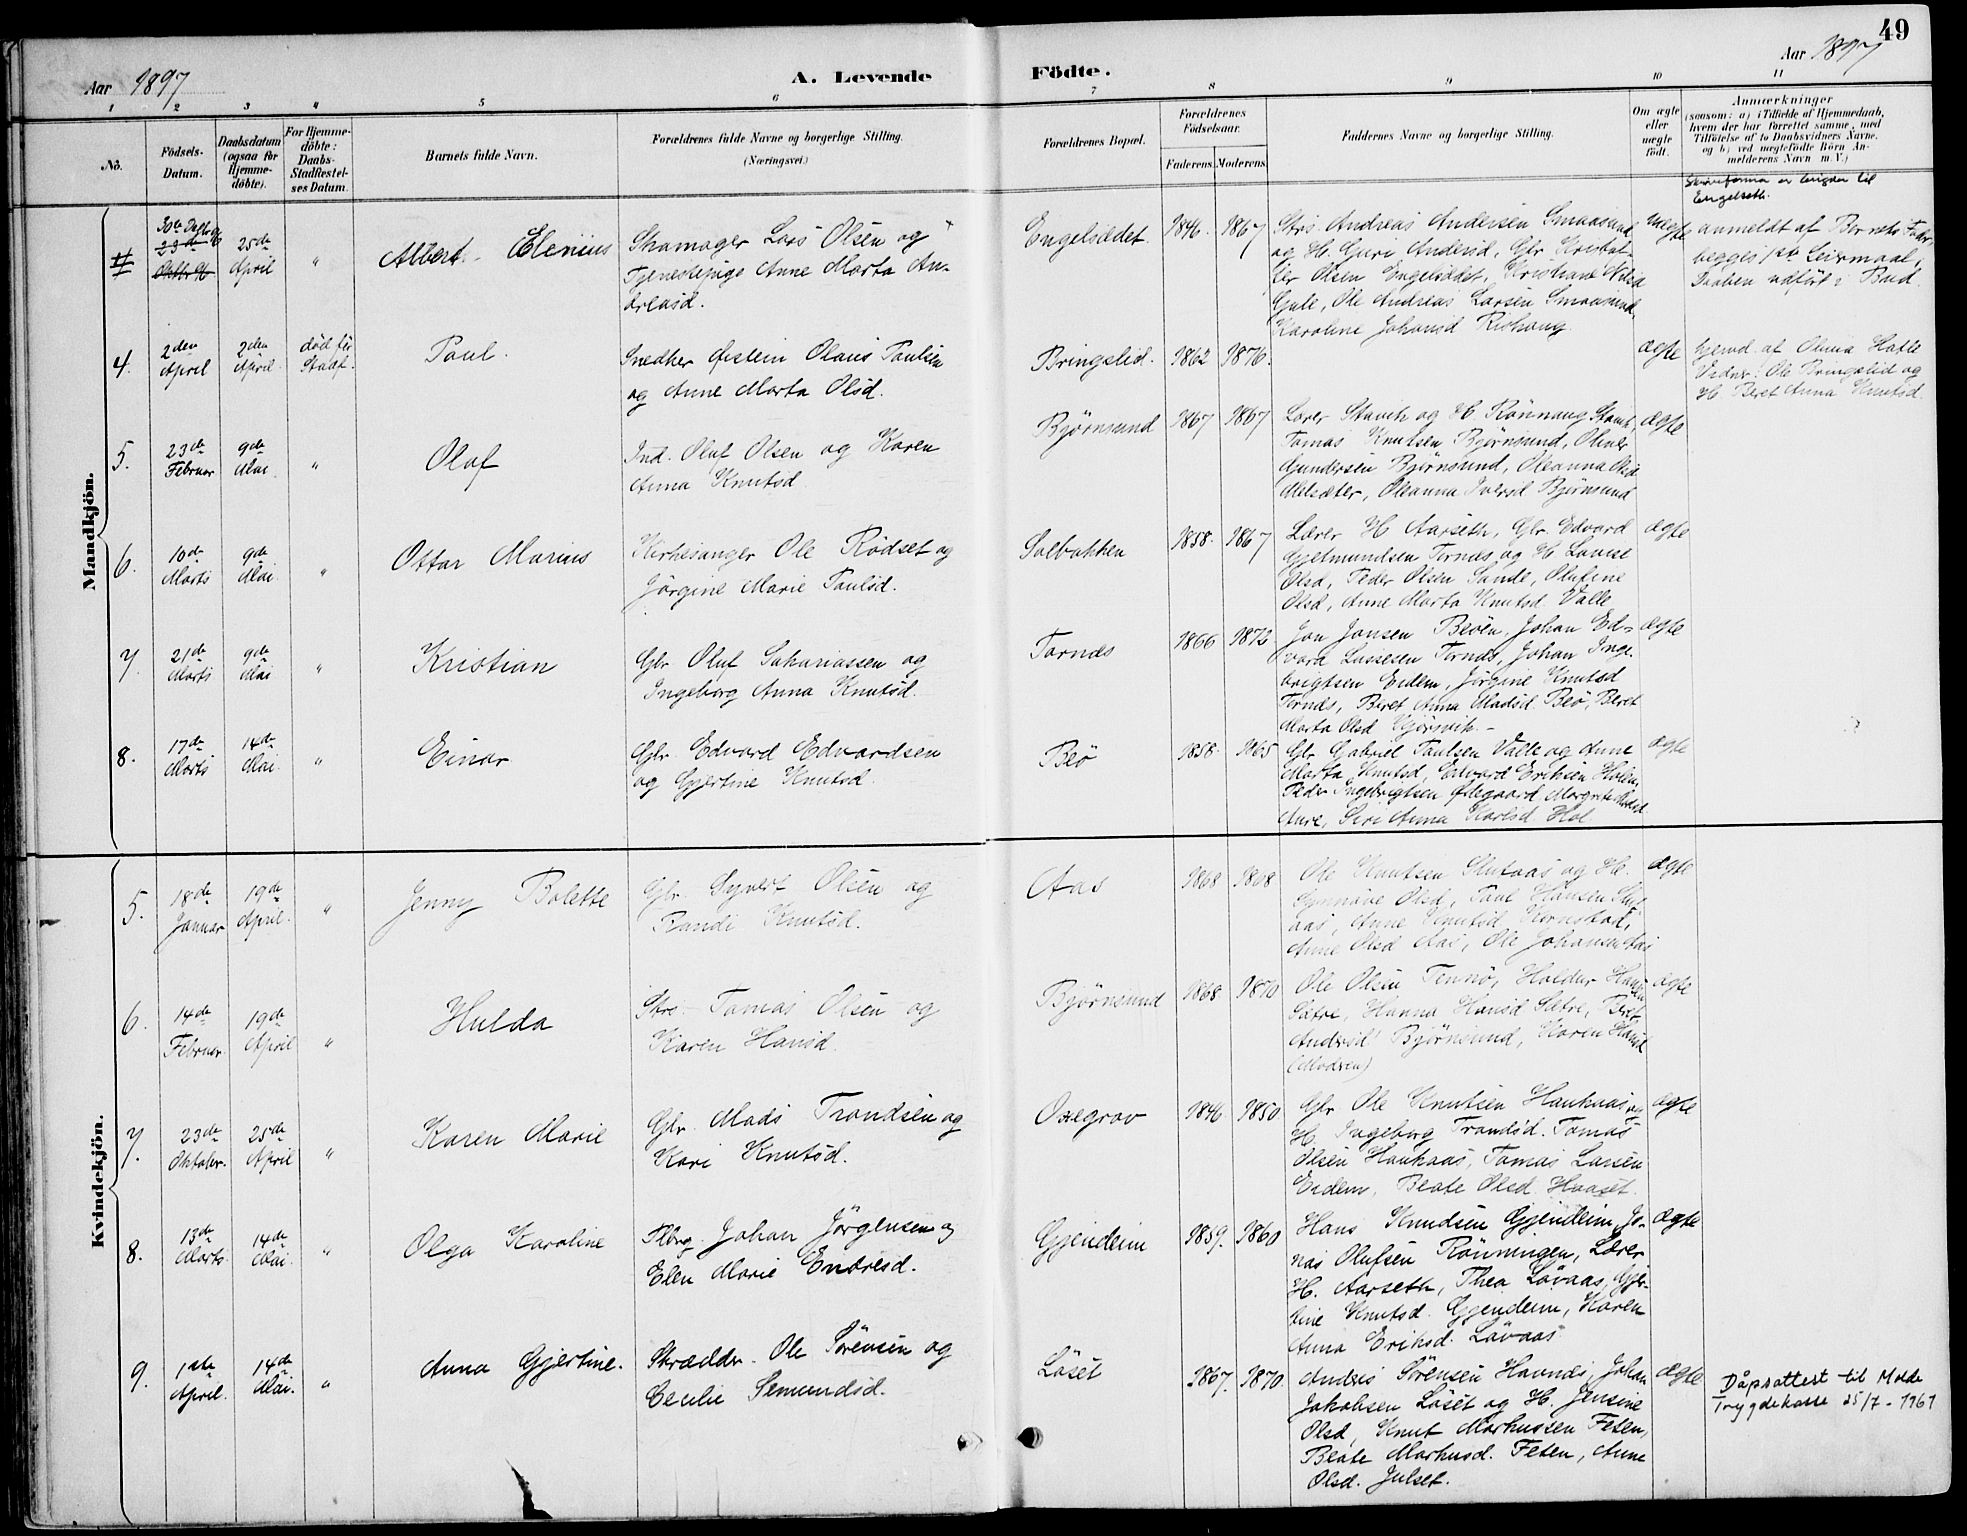 49
Aar 1897
A. Levende
Födte.
Aar 1897
1 2 3 4 5 6 7 8 9 10 11
No.
Födsels-
Datum.
Daabsdatum
(ogsaa for
Hjemme-
döbte).
For Hjemme-
döbte:
Daabs-
Stadfæstel-
ses Datum.
Barnets fulde Navn.
Forældrenes fulde Navne og borgerlige Stilling.
(Næringsvei.)
Forældrenes Bopæl.
Forældrenes
Födselsaar.
Faderens. Moderens.
Faddernes Navne og borgerlige Stilling.
Om ægte
eller
uægte
født.
Anmærkninger
(saasom: a) i Tilfælde af Hjemmedaab,
hvem der har forrettet samme, med
Tilføielse af to Daabsvidners Navne.
og b) ved uægtefødte Börn An-
melderens Navn m. V.)
Mandkjön.
25de
April
"
Albert Elenius
Skomager Lars Olsen og
Tjenestepige Anne Marta An-
dreasd.
Engelsædet.
1846. 1867
Strs. Andreas Andersen Smaasund
og H. Guri Andersd, Gbr. Kristof-
fer Olsen Engelsædet, Kristiane
Gule, Ole Andreas Larsen Smaasund,
Karoline Johansd Rishaug
uægte
Engelseth.
anmeldt af Barnets Fader,
begges 1ste Leiermaal,
Daaben udført i Bud.
4.
2den
April
2den
April
død før
Stadf.
Paul.
Snedker Østein Olaus Paulsen
og Anne Marta Olsd.
Bringslid.
1862 1876.
ægte
hjemd. af Olina Hatle
Vidner: Ole Bringslid og
H. Beret Anna Knutsd.
5.
23de
Februar
9de
Mai.
"
Olaf
Ind. Oluf Olsen og Karen
Anna Knutsd
Bjørnsund
1867 1867
Lærer Stavik og H. Rønnaug Stavik,
Tomas Knutsen Bjørnsund, Oliver
Gundersen Bjørnsund, Oleanna Olsd
Melsæter, Oleanna Iversd Bjørnsund
ægte
6.
10de
Marts
9de
Mai.
"
Ottar Marius
Kirkesanger Ole Rødset og
Jørgine Marie Paulsd.
Solbakken
1858. 1867
Lærer H Aarseth, Gbr. Edvard
Gjelmundsen Tornes og H Lovise
Olsd, Peder Olsen Sande, Olufine
Olsd, Anne Marta Knutsd Valle
ægte
7.
21de
Marts
9de
Mai
"
Kristian
Gbr Oluf Sakariassen og
Ingeborg Anna Knutsd.
Tornes
1866 1872
Jon Jonsen Beøen, Johan Ed-
vard Tornes, Johan Inge-
brigtsen Eidem, Jørgine Knutsd
Tornes, Beret Anna Madsd Beø, Beret
Marta Olsd
ægte
8.
17de
Marts
14de
Mai.
"
Einar
Gbr. Edvard Edvardsen
og Gjertine Knutsd.
Beø
1858. 1865
Gbr Gabriel Paulsen Valle og Anne
Marta Knutsd, Edvard Eriksen Holen,
Peder Ingebrigtsen Østegaard,
Aure, Siri Anna Karlsd Hol
ægte
Kvindekjön.
5.
18de
Januar
19de
April.
"
Jenny Bolette
Gbr. Syvert Olsen og
Randi Knutsd.
Aas
1868 1868
Ole Knutsen Skutaas og H.
Synnøve Olsd, Paul Hansen Skut-
aas, Anne Knutsd Kornstad,
Anne Olsd Aas, Ole Johansen Aas
ægte
6.
14de
Februar.
19de
April
"
Hulda
Strs. Tomas Olsen og
Karen Hansd.
Bjørnsund
1868 1870
Ole Olsen Tennø, Haldur Hansen
Sætre, Hanna Hansd Sætre, Beret
Andrsd Bjørnsund, Karen Hansd
(Modren)
ægte
7.
23de
Oktober.
25de
April
"
Karen Marie
Gbr. Mads Trondsen og
Kari Knutsd.
Oxegrov
1846 1850
Gbr Ole Knutsen Haukaas og
H. Ingeborg Trondsd. Tomas
Olsen Haukaas, Tomas Larsen
Eidem, Beate Olsd Haaset.
ægte
8.
13de
Marts.
14de
Mai.
"
Olga Karoline
Flbrg. Johan Jørgensen og
Elen Marie Endresd.
Gjendeim
1859. 1860
Hans Knudsen Gjendeim, Jo-
nas Olufsen Rønningen, Lærer
H. Aarseth, Thea Løvaas, Gjer-
tine Knutsd. Gjendeim, Karen
Anna Eriksd. Løvaas
ægte
9.
1ste
April.
14de
Mai.
"
Anna Gjertine.
Skrædder. Ole Sørensen og
Cecilie Semundsd.
Løset
1867. 1870.
Andreas Sørensen Havnes, Johan
Jakobsen Løset og H. Jensine
Olsd, Knut Markussen Feten,
Beate Markusd. Feten, Anne
Olsd. Julset.
ægte
Dåpsattest til Molde
Trygdekasse 25/7 - 1961